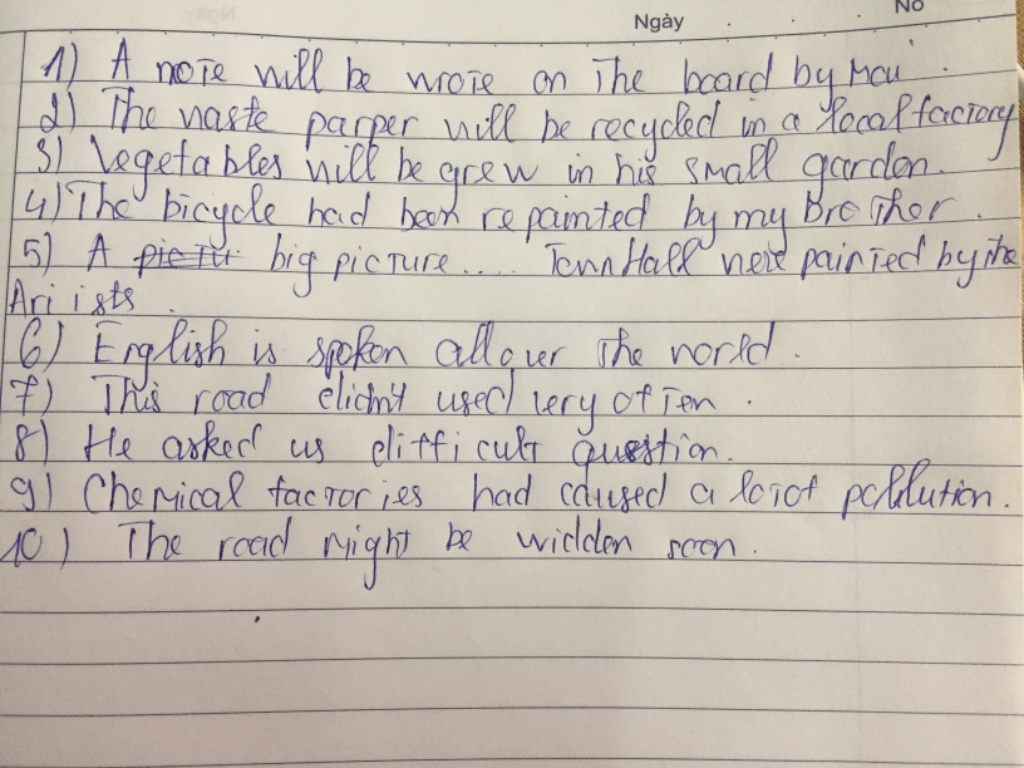 Ngày No
1) A note will be wrote on the board by Mai.
2) The waste parper will be recycled in a local factory
3) Vegetables will be grew in his small garden.
4) The bicycle had been repainted by my brother.
5) A big picture.... Town Hall were painted by the
Artists.
6) English is spoken all over the world.
7) This road didn't used very often.
8) He asked us difficult question.
9) Chemical factories had caused a lot of pollution.
10) The road might be widden soon.